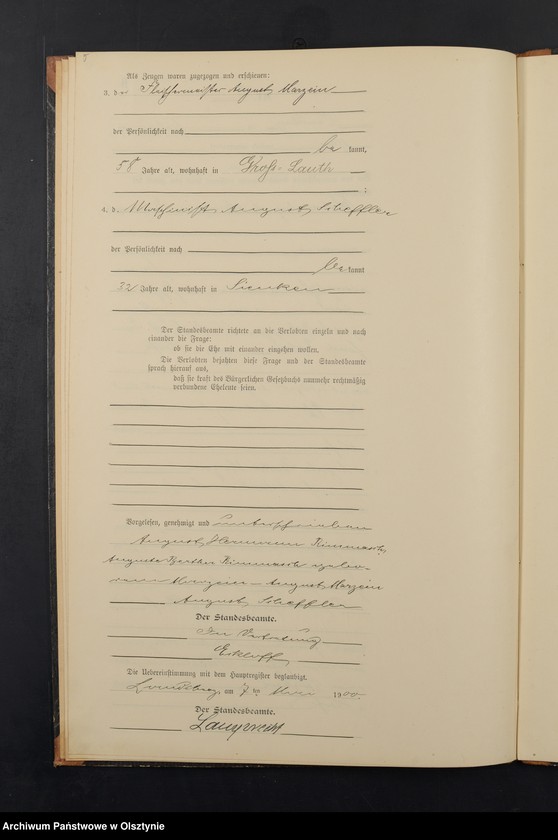 Als Zeugen waren zugezogen und erschienen:
3. der Fleischermeister August Marzein
der Persönlichkeit nach
be kannt,
58 Jahre alt, wohnhaft in Groß-Lauth
;
4. d. Maschinist August Scheffler
der Persönlichkeit nach
be kannt
32 Jahre alt, wohnhaft in Sienken
Der Standesbeamte richtete an die Verlobten einzeln und nach
einander die Frage:
ob sie die Ehe mit einander eingehen wollen.
Die Verlobten bejahten diese Frage und der Standesbeamte
sprach hierauf aus,
daß sie kraft des Bürgerlichen Gesetzbuchs nunmehr rechtmäßig
verbundene Eheleute seien.
Vorgelesen, genehmigt und unterschrieben
August Hermann
Auguste Bertha gebo-
rene Marzein August Marzein
August Scheffler
Der Standesbeamte.
In Vertretung
Die Uebereinstimmung mit dem Hauptregister beglaubigt.
Landsberg am 7 ten 1900.
Der Standesbeamte.